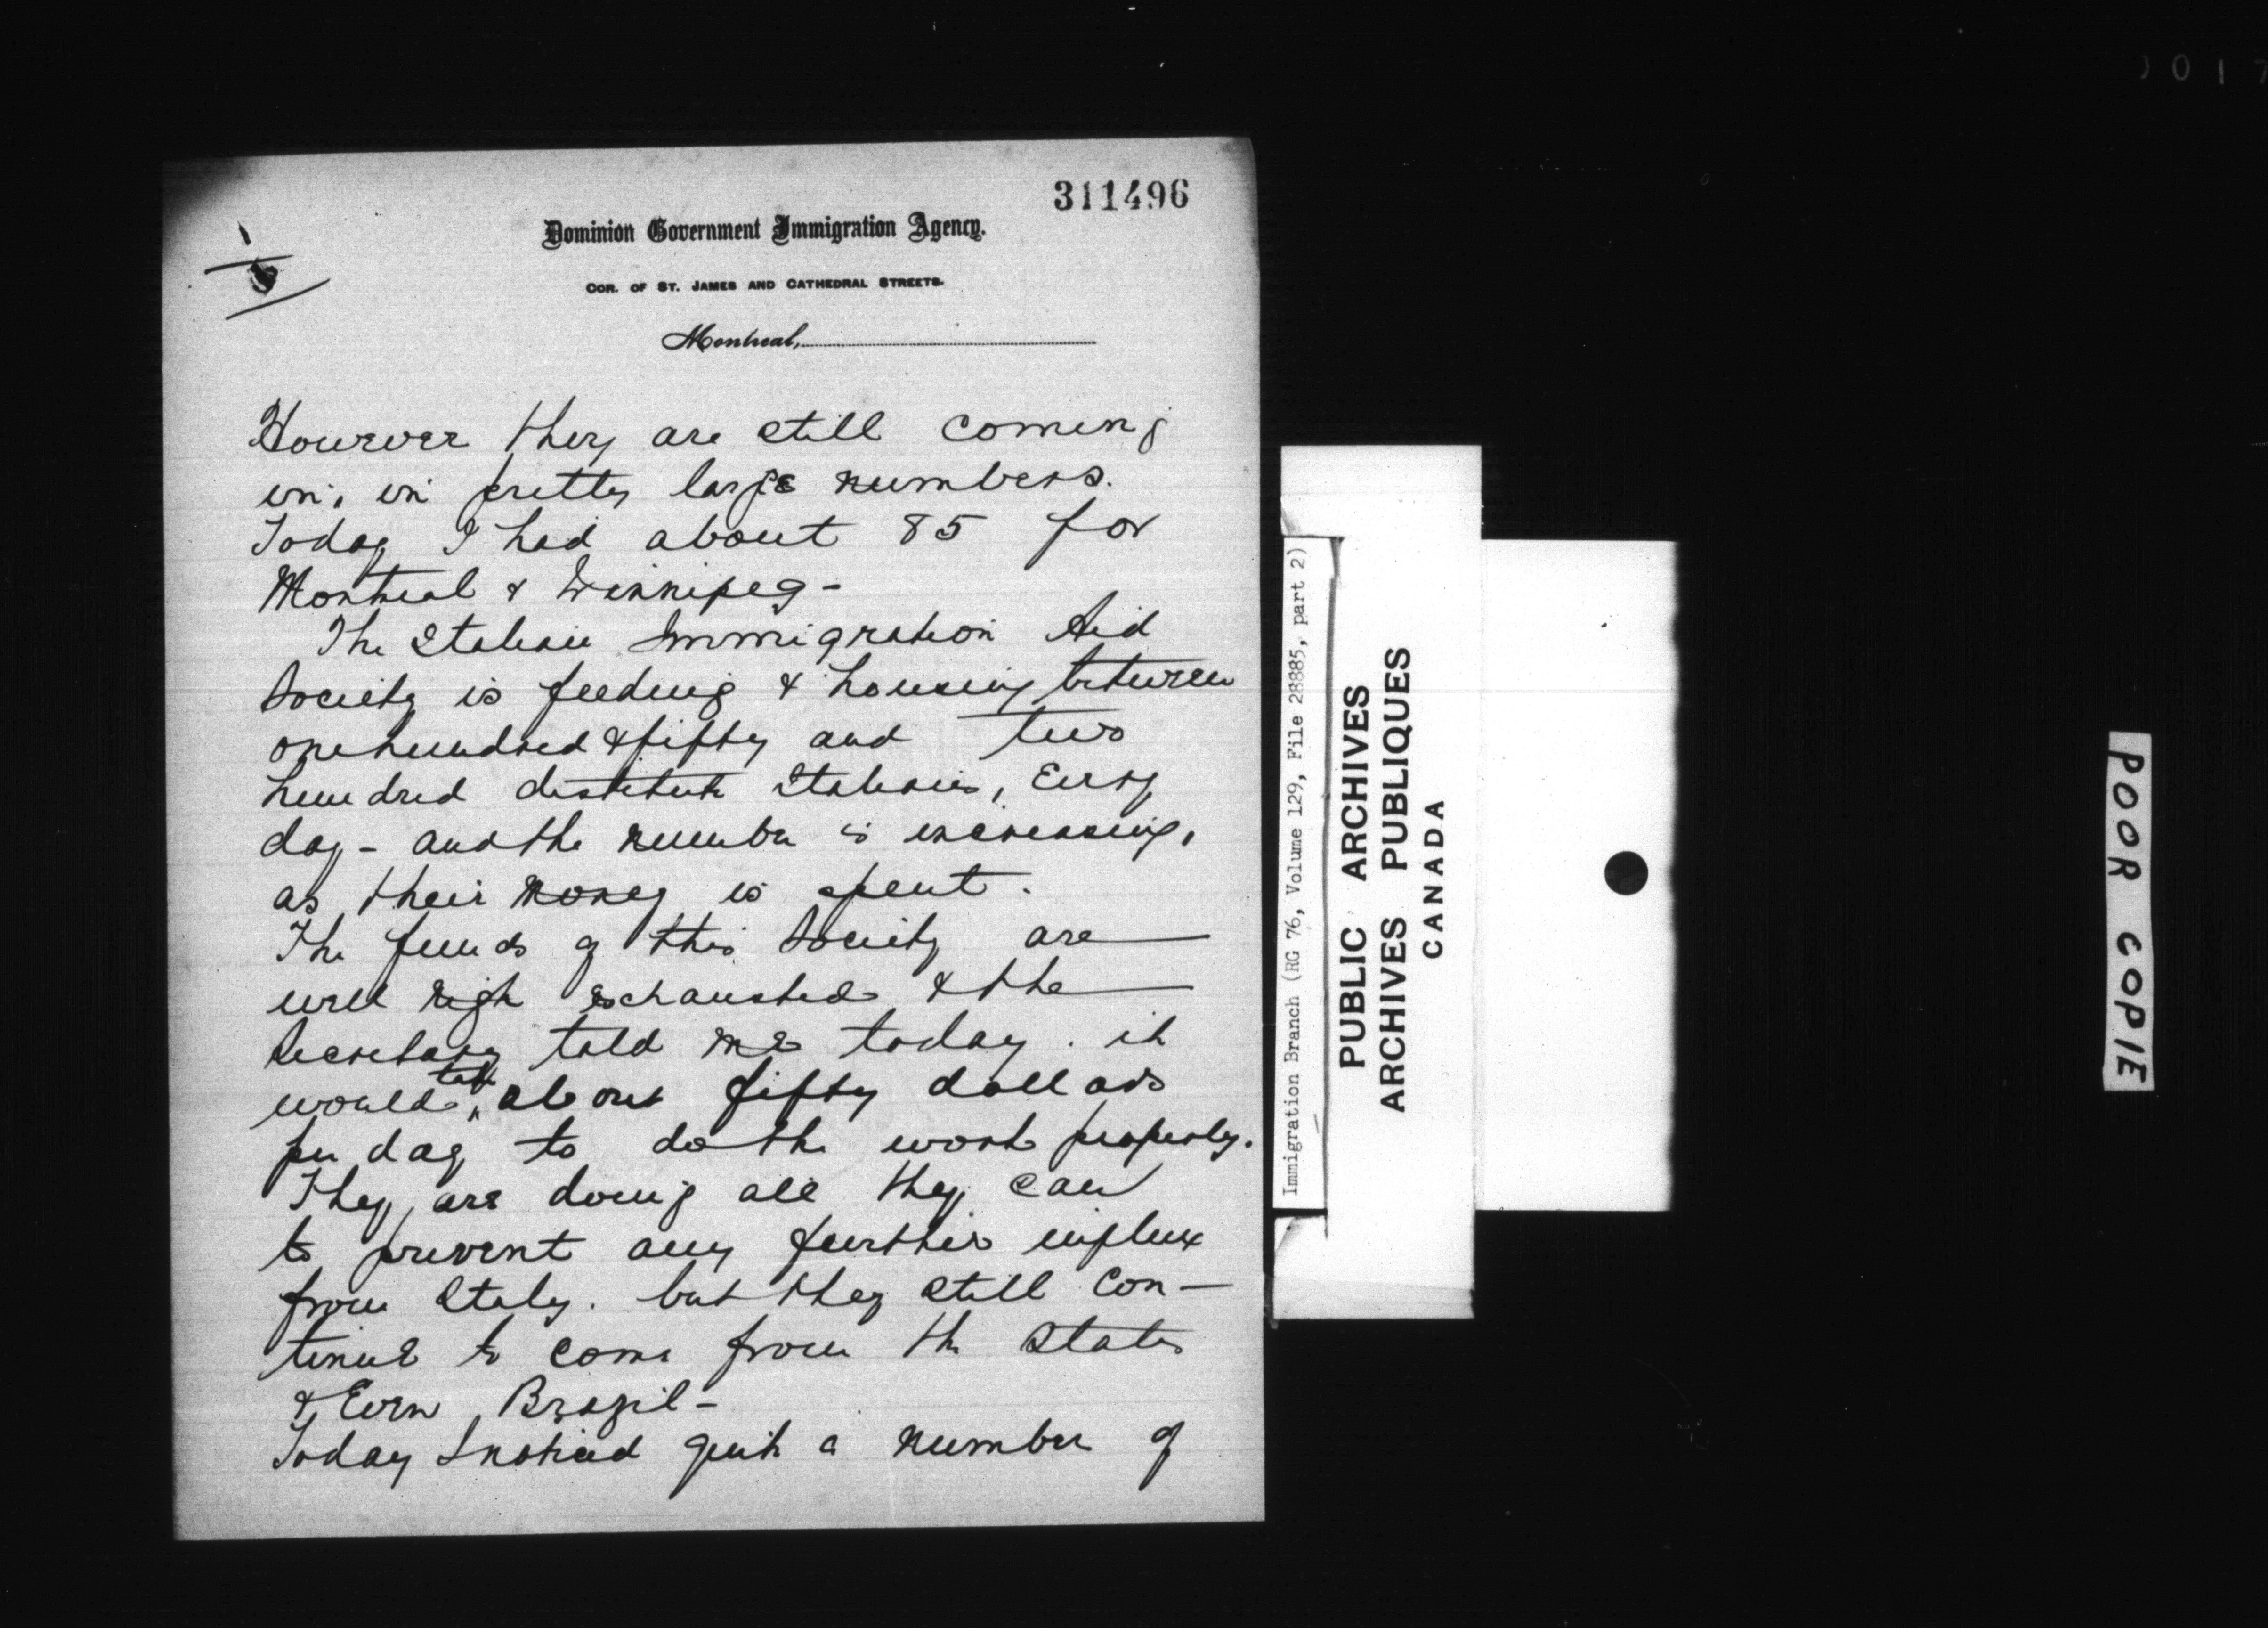 311496
Dominion Government Immigration Agency.
COR. OF ST. JAMES AND CATHEDRAL STREETS.
Montreal,
However they are still coming
in, in pretty large numbers.
Today I had about 85 for
Montreal & Winnipeg -
The Italian Immigration Aid
Society is feeding & housing between
one hundred & fifty and two
hundred destitute Italians, Every
day - and the number is increasing,
as their money is spent.
The funds of this Society are
well nigh exhausted & the
Secretary told me today. it
would take about fifty dollars
per day to do the work properly.
They are doing all they can
to prevent any further influx
from Italy. but they still con-
tinue to come from the States
& Even Brazil -
Today I noticed quite a number of
Immigration Branch (RG 76, Volume 129, File 28885, part 2)
PUBLIC ARCHIVES
ARCHIVES PUBLIQUES
CANADA
POOR COPIE
017